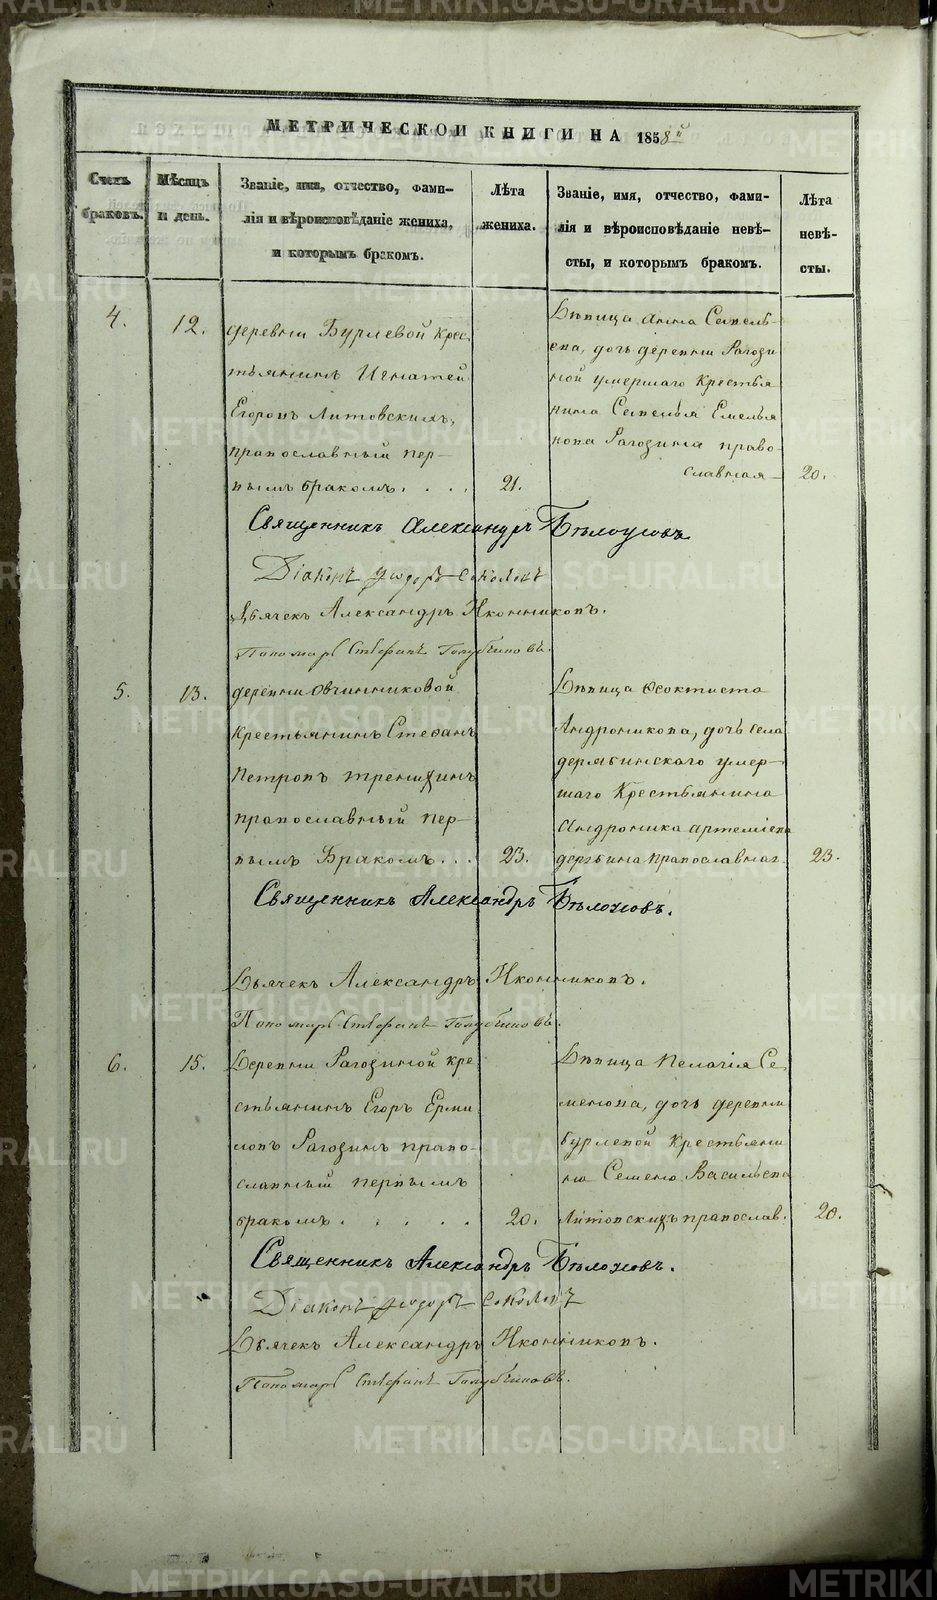 МЕТРИЧЕСКОЙ КНИГИ НА 1858й
Счетъ браковъ.
Мѣсяцъ и день.
Званіе, имя, отчество, фами-
лія и вѣроисповѣданіе жениха,
и которымъ бракомъ.
Лѣта жениха.
Званіе, имя, отчество, фами-
лія и вѣроисповѣданіе невѣ-
сты, и которымъ бракомъ.
Лѣта невѣ-
сты.
4.
12.
деревни Бурлевой крес
тьянинъ Игнатей
Егоровъ Литовскихъ,
православный пер-
вымъ бракомъ. . . .
21.
Дѣвица Анна Савель-
ева, дочь деревни Рагози
ной умершаго Крестья
нина Савелья Емелья
нова Рагозина право-
славная-
20.
Священникъ Александръ Бѣлоусовъ
Діаконъ Ѳеодоръ Соколовъ
Дьячекъ Александръ Иконниковъ.
Пономарь Стефанъ Голубчиковъ.
5.
13.
деревни Овчинниковой
Крестьянинъ Стефанъ
Петровъ Тренихинъ
православный пер-
вымъ Бракомъ. . .
23.
Дѣвица Ѳеоктиста
Андроникова, дочь села
дерябинскаго умер-
шаго Крестьянина
Андроника Артеміева
дерябина православная.
23.
Священникъ Александръ Бѣлоусовъ.
Дьячекъ Александръ Иконниковъ.
Пономарь Стефанъ Голубчиковъ.
6.
15.
Деревни Рагозиной кре
стьянинъ Егоръ Ерми
ловъ Рагозинъ право-
славный первымъ
бракомъ. . . . .
20.
Дѣвица Пелагія Се
менова, дочь деревни
бурлевой Крестьяни
на Семена Васильева
Литовскихъ православ.
20.
Священникъ Александръ Бѣлоусовъ.
Діаконъ Ѳеодоръ Соколовъ
Дьячекъ Александръ Иконниковъ.
Пономарь Стефанъ Голубчиковъ.
METRIKI.GASO-URAL.RU